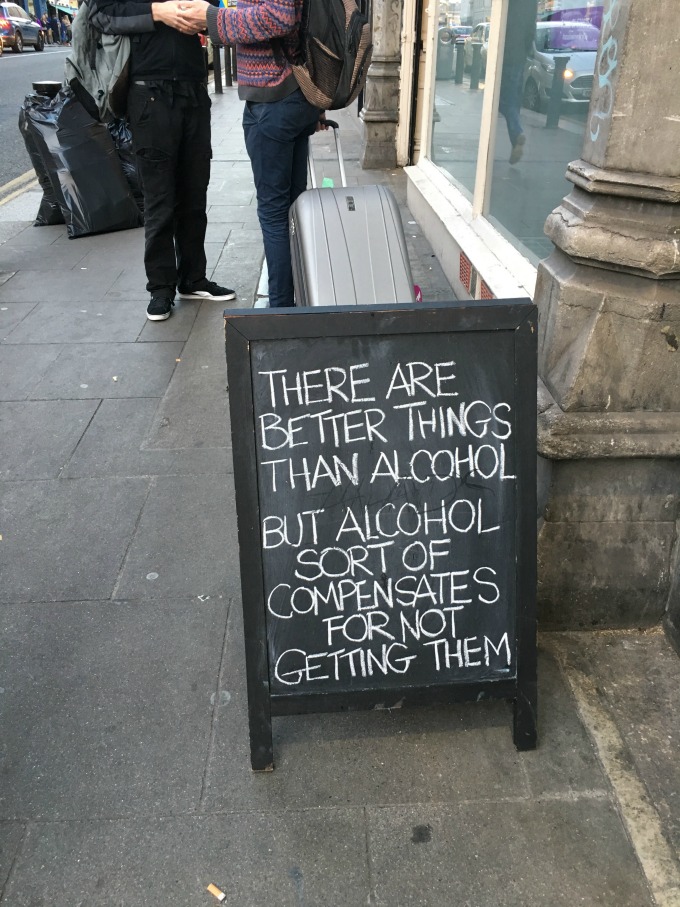 THERE ARE
BETTER THINGS
THAN ALCOHOL
BUT ALCOHOL
SORT OF
COMPENSATES
FOR NOT
GETTING THEM